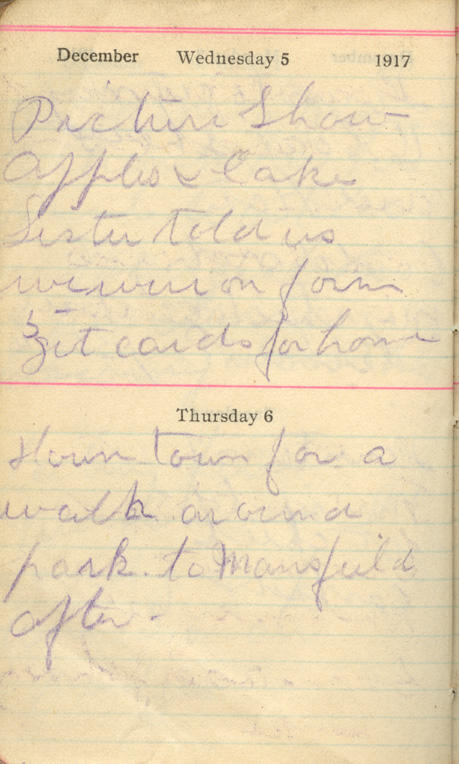 December Wednesday 5 1917
Picture Show
Apples & Cake
Sister told us
we were on form
5
Get cards for home
Thursday 6
Down town for a
walk around
park. to Mansfield
after.